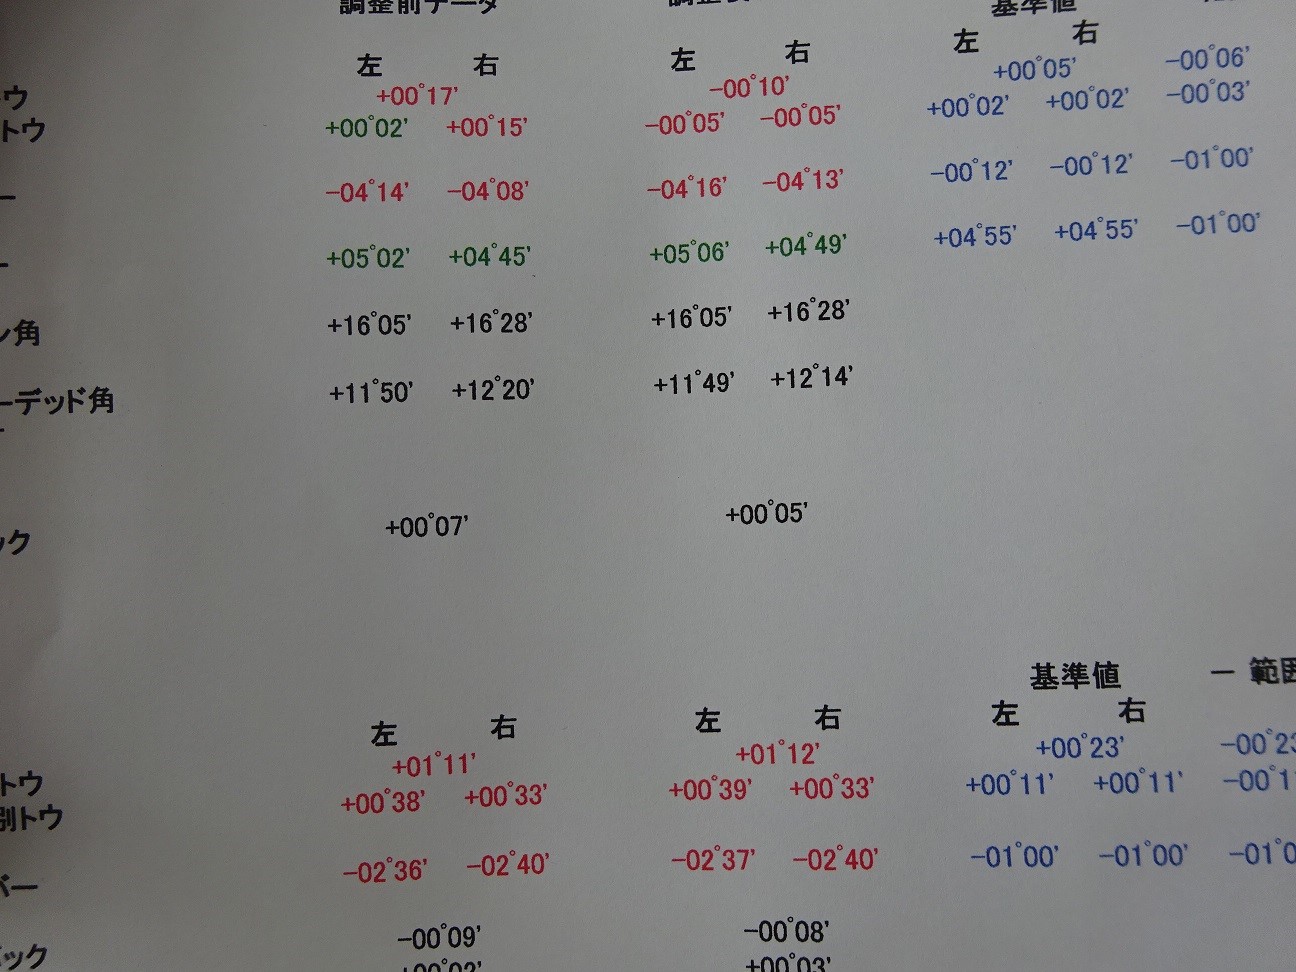 調整前データ 調整 基準値
左 右 左 右 左 右
+00°17' -00°10' +00°05' -00°06'
トウ +00°02' +00°15' -00°05' -00°05' +00°02' +00°02' -00°03'
ー -04°14' -04°08' -04°16' -04°13' -00°12' -00°12' -01°00'
ー +05°02' +04°45' +05°06' +04°49' +04°55' +04°55' -01°00'
ン角 +16°05' +16°28' +16°05' +16°28'
ーデッド角 +11°50' +12°20' +11°49' +12°14'
ック +00°07' +00°05'
基準値 － 範囲
左 右 左 右 左 右
トウ +01°11' +01°12' +00°23' -00°23
別トウ +00°38' +00°33' +00°39' +00°33' +00°11' +00°11' -00°1
バー -02°36' -02°40' -02°37' -02°40' -01°00' -01°00' -01°0
バック -00°09' -00°08'
+00°02' +00°03'